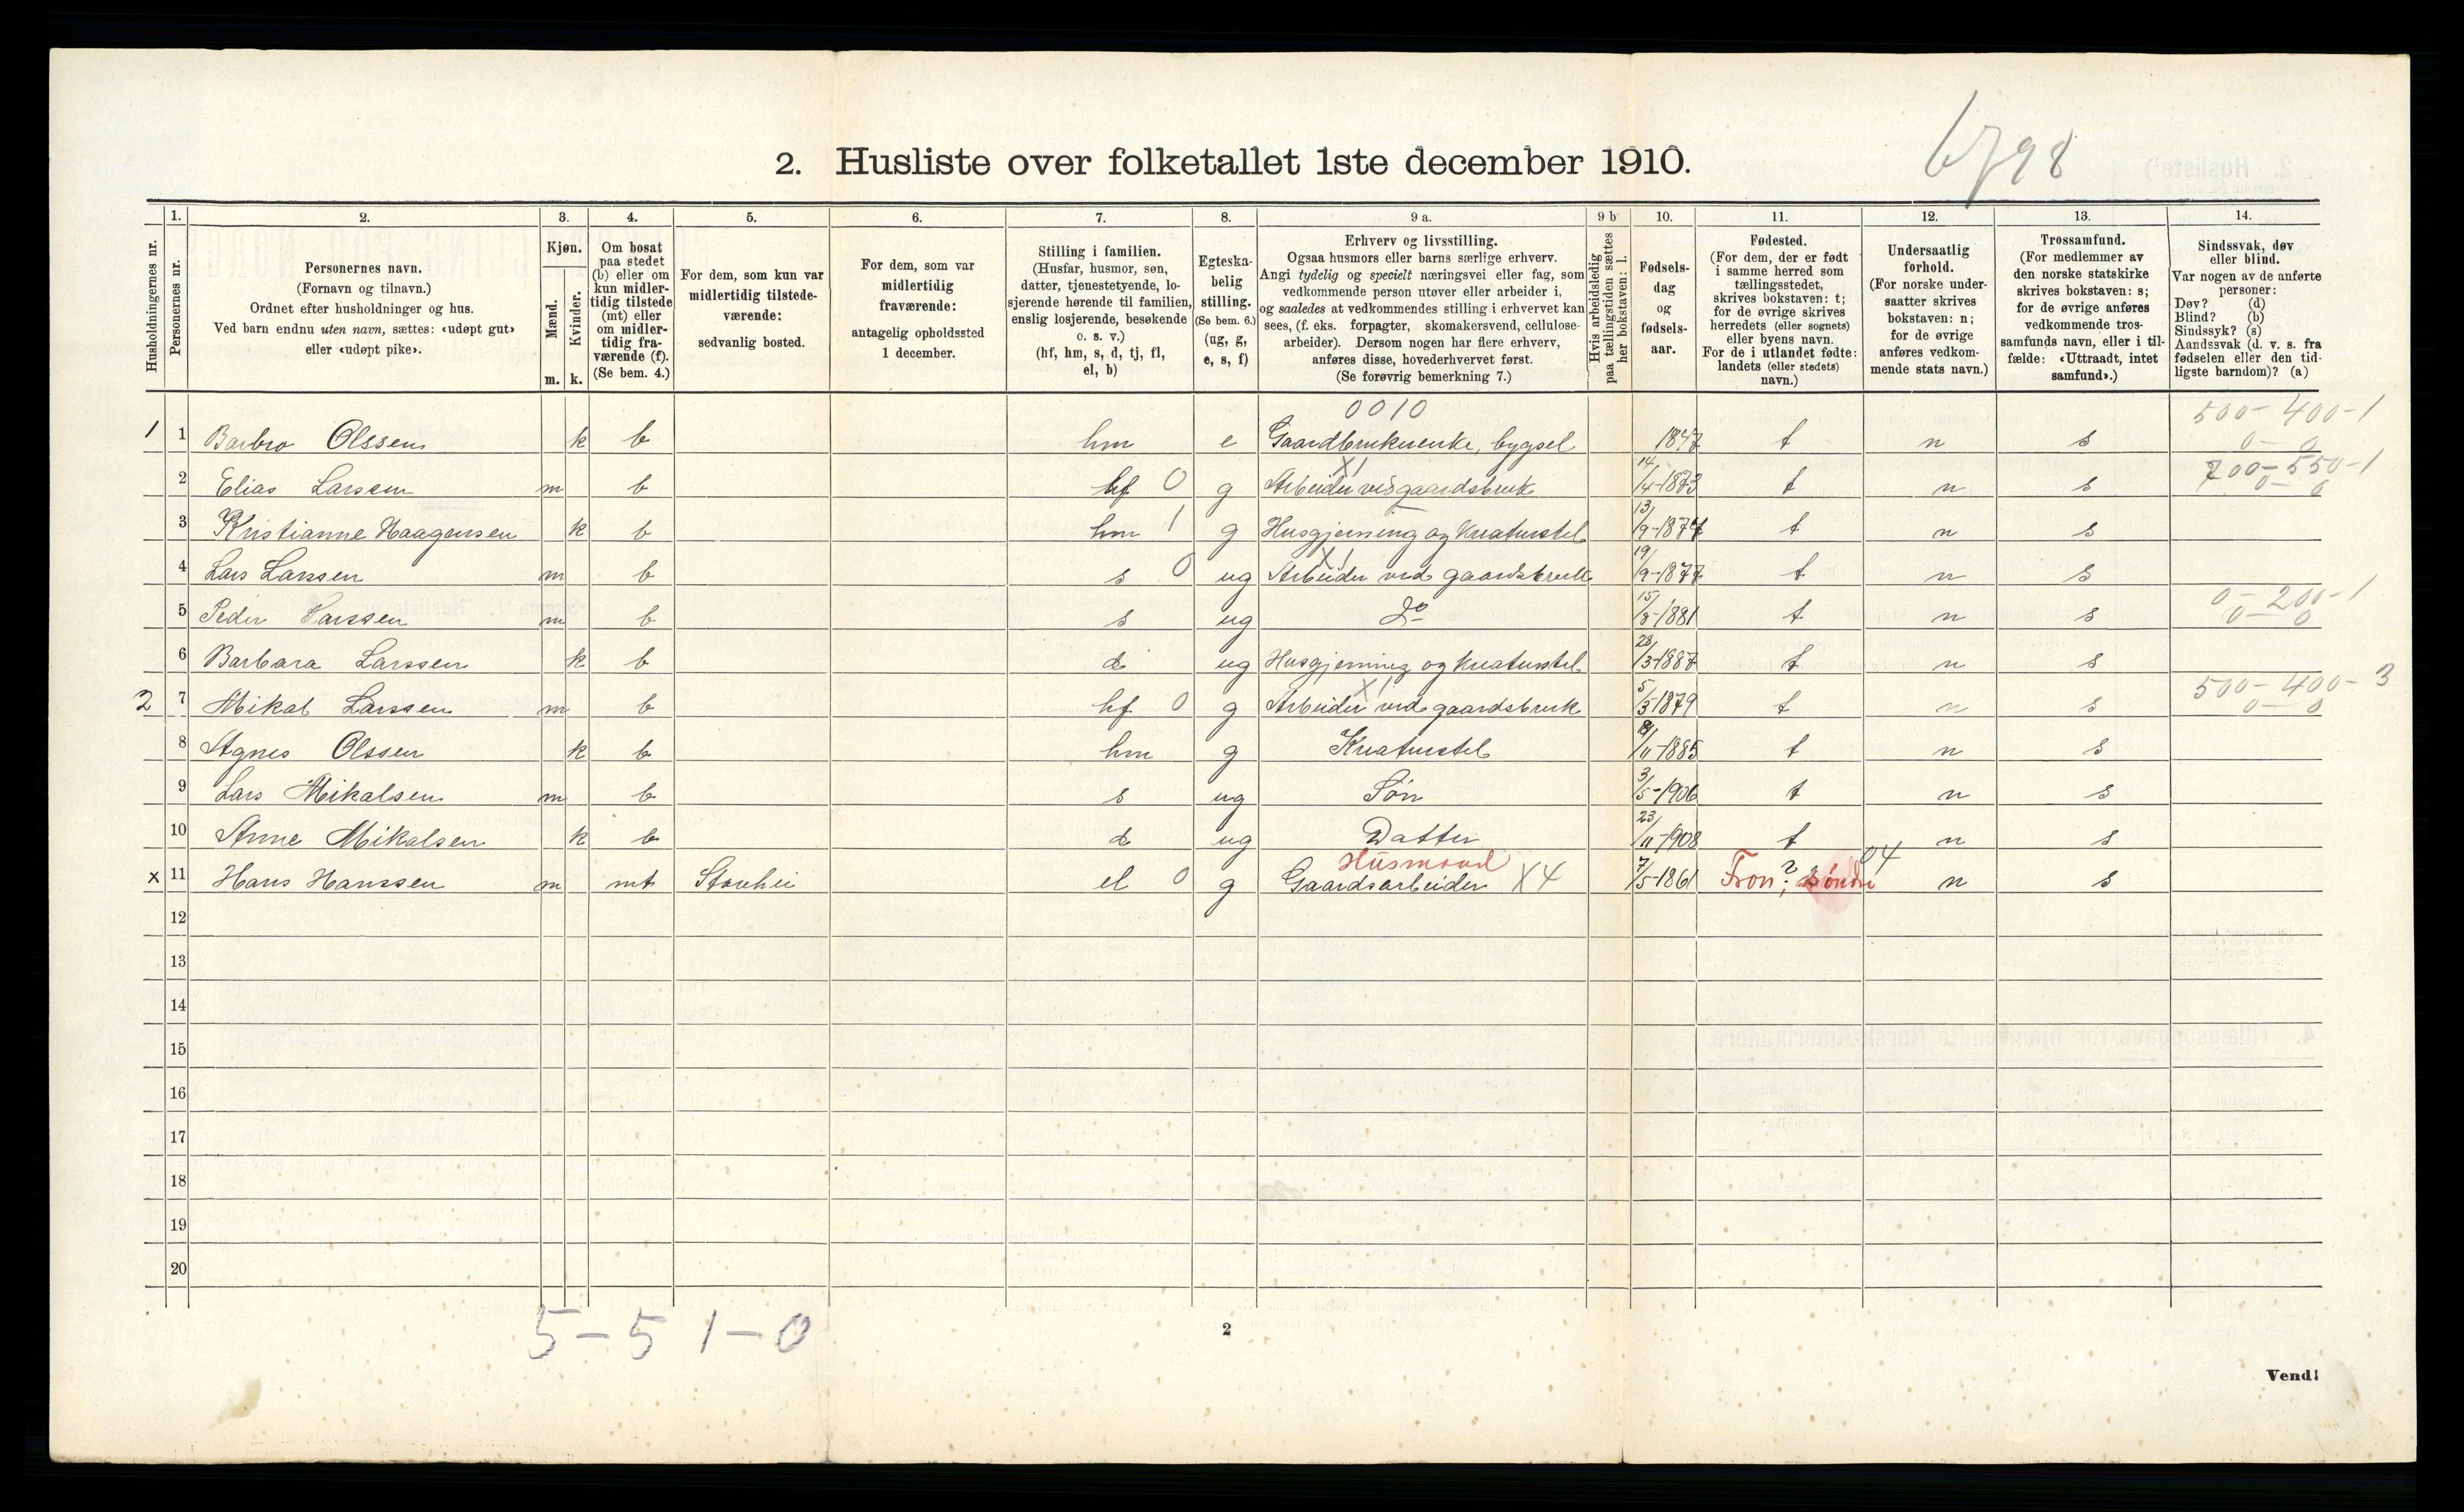 6798
2. Husliste over folketallet 1ste december 1910.
1. 2. 3. 4. 5. 6. 7. 8. 9 a. 9 b 10. 11. 12. 13. 14.
Husholdningernes nr.
Personernes nr.
Personernes navn.
(Fornavn og tilnavn.)
Ordnet efter husholdninger og hus.
Ved barn endnu uten navn, sættes: «udøpt gut»
eller «udøpt pike».
Kjøn.
Mænd.
Kvinder.
m. k.
Om bosat
paa stedet
(b) eller om
kun midler-
tidig tilstede
(mt) eller
om midler-
tidig fra-
værende (f).
(Se bem. 4.)
For dem, som kun var
midlertidig tilstede-
værende:
sedvanlig bosted.
For dem, som var
midlertidig
fraværende:
antagelig opholdssted
1 december.
Stilling i familien.
(Husfar, husmor, søn,
datter, tjenestetyende, lo-
sjerende hørende til familien,
enslig losjerende, besøkende
o. s. v.)
(hf, hm, s, d, tj, fl,
el, b)
Egteska-
belig
stilling.
(Se bem. 6.)
(ug, g,
e, s, f)
Erhverv og livsstilling.
Ogsaa husmors eller barns særlige erhverv.
Angi tydelig og specielt næringsvei eller fag, som
vedkommende person utøver eller arbeider i,
og saaledes at vedkommendes stilling i erhvervet kan
sees, (f. eks. forpagter, skomakersvend, cellulose-
arbeider). Dersom nogen har flere erhverv,
anføres disse, hovederhvervet først.
(Se forøvrig bemerkning 7.)
Hvis arbeidsledig
paa tællingstiden sættes
her bokstaven: l.
Fødsels-
dag
og
fødsels-
aar.
Fødested.
(For dem, der er født
i samme herred som
tællingsstedet,
skrives bokstaven: t;
for de øvrige skrives
herredets (eller sognets)
eller byens navn.
For de i utlandet fødte:
landets (eller stedets)
navn.)
Undersaatlig
forhold.
(For norske under-
saatter skrives
bokstaven: n;
for de øvrige
anføres vedkom-
mende stats navn.)
Trossamfund.
(For medlemmer av
den norske statskirke
skrives bokstaven: s;
for de øvrige anføres
vedkommende tros-
samfunds navn, eller i til-
fælde: «Uttraadt, intet
samfund».)
Sindssvak, døv
eller blind.
Var nogen av de anførte
personer:
Døv? (d)
Blind? (b)
Sindssyk? (s)
Aandssvak (d. v. s. fra
fødselen eller den tid-
ligste barndom)? (a)
0010 500-400-1
1 1 Barbro Olssen k b hm e Gaardbrukerenke, bygsel 1847 t n s 0-0
X1 700-550-1
2 Elias Larssen m b hf 0 g Arbeider ved gaardsbruk 14/4-1873 t n s 0-0
3 Kristianne Haagensen k b hm 1 g Husgjerning og kreaturstel 13/9-1874 t n s
X1
4 Lars Larssen m b s 0 ug Arbeider ved gaardsbruk 19/9-1877 t n s
0-200-1
5 Peder Larssen m b s ug Do 15/3-1881 t n s 0-0
6 Barbara Larssen k b d ug Husgjerning og kreaturstel 28/3-1887 t n s
X1 500-400-3
2 7 Mikal Larssen m b hf 0 g Arbeider ved gaardsbruk 5/3 1879 t n s 0-0
8 Agnes Olssen k b hm g Kreaturstel 8/11-1885 t n s
9 Lars Mikalsen m b s ug Søn 3/5-1906 t n s
10 Anne Mikalsen k b d ug Datter 23/11-1908 t n s
Husmand 04
x 11 Hans Hanssen m mt el 0 g Gaardsarbeider X4 7/5-1861 Fron?, søndre n s
12
13
14
15
16
17
18
19
20
5-5 1-0
2
Vend!